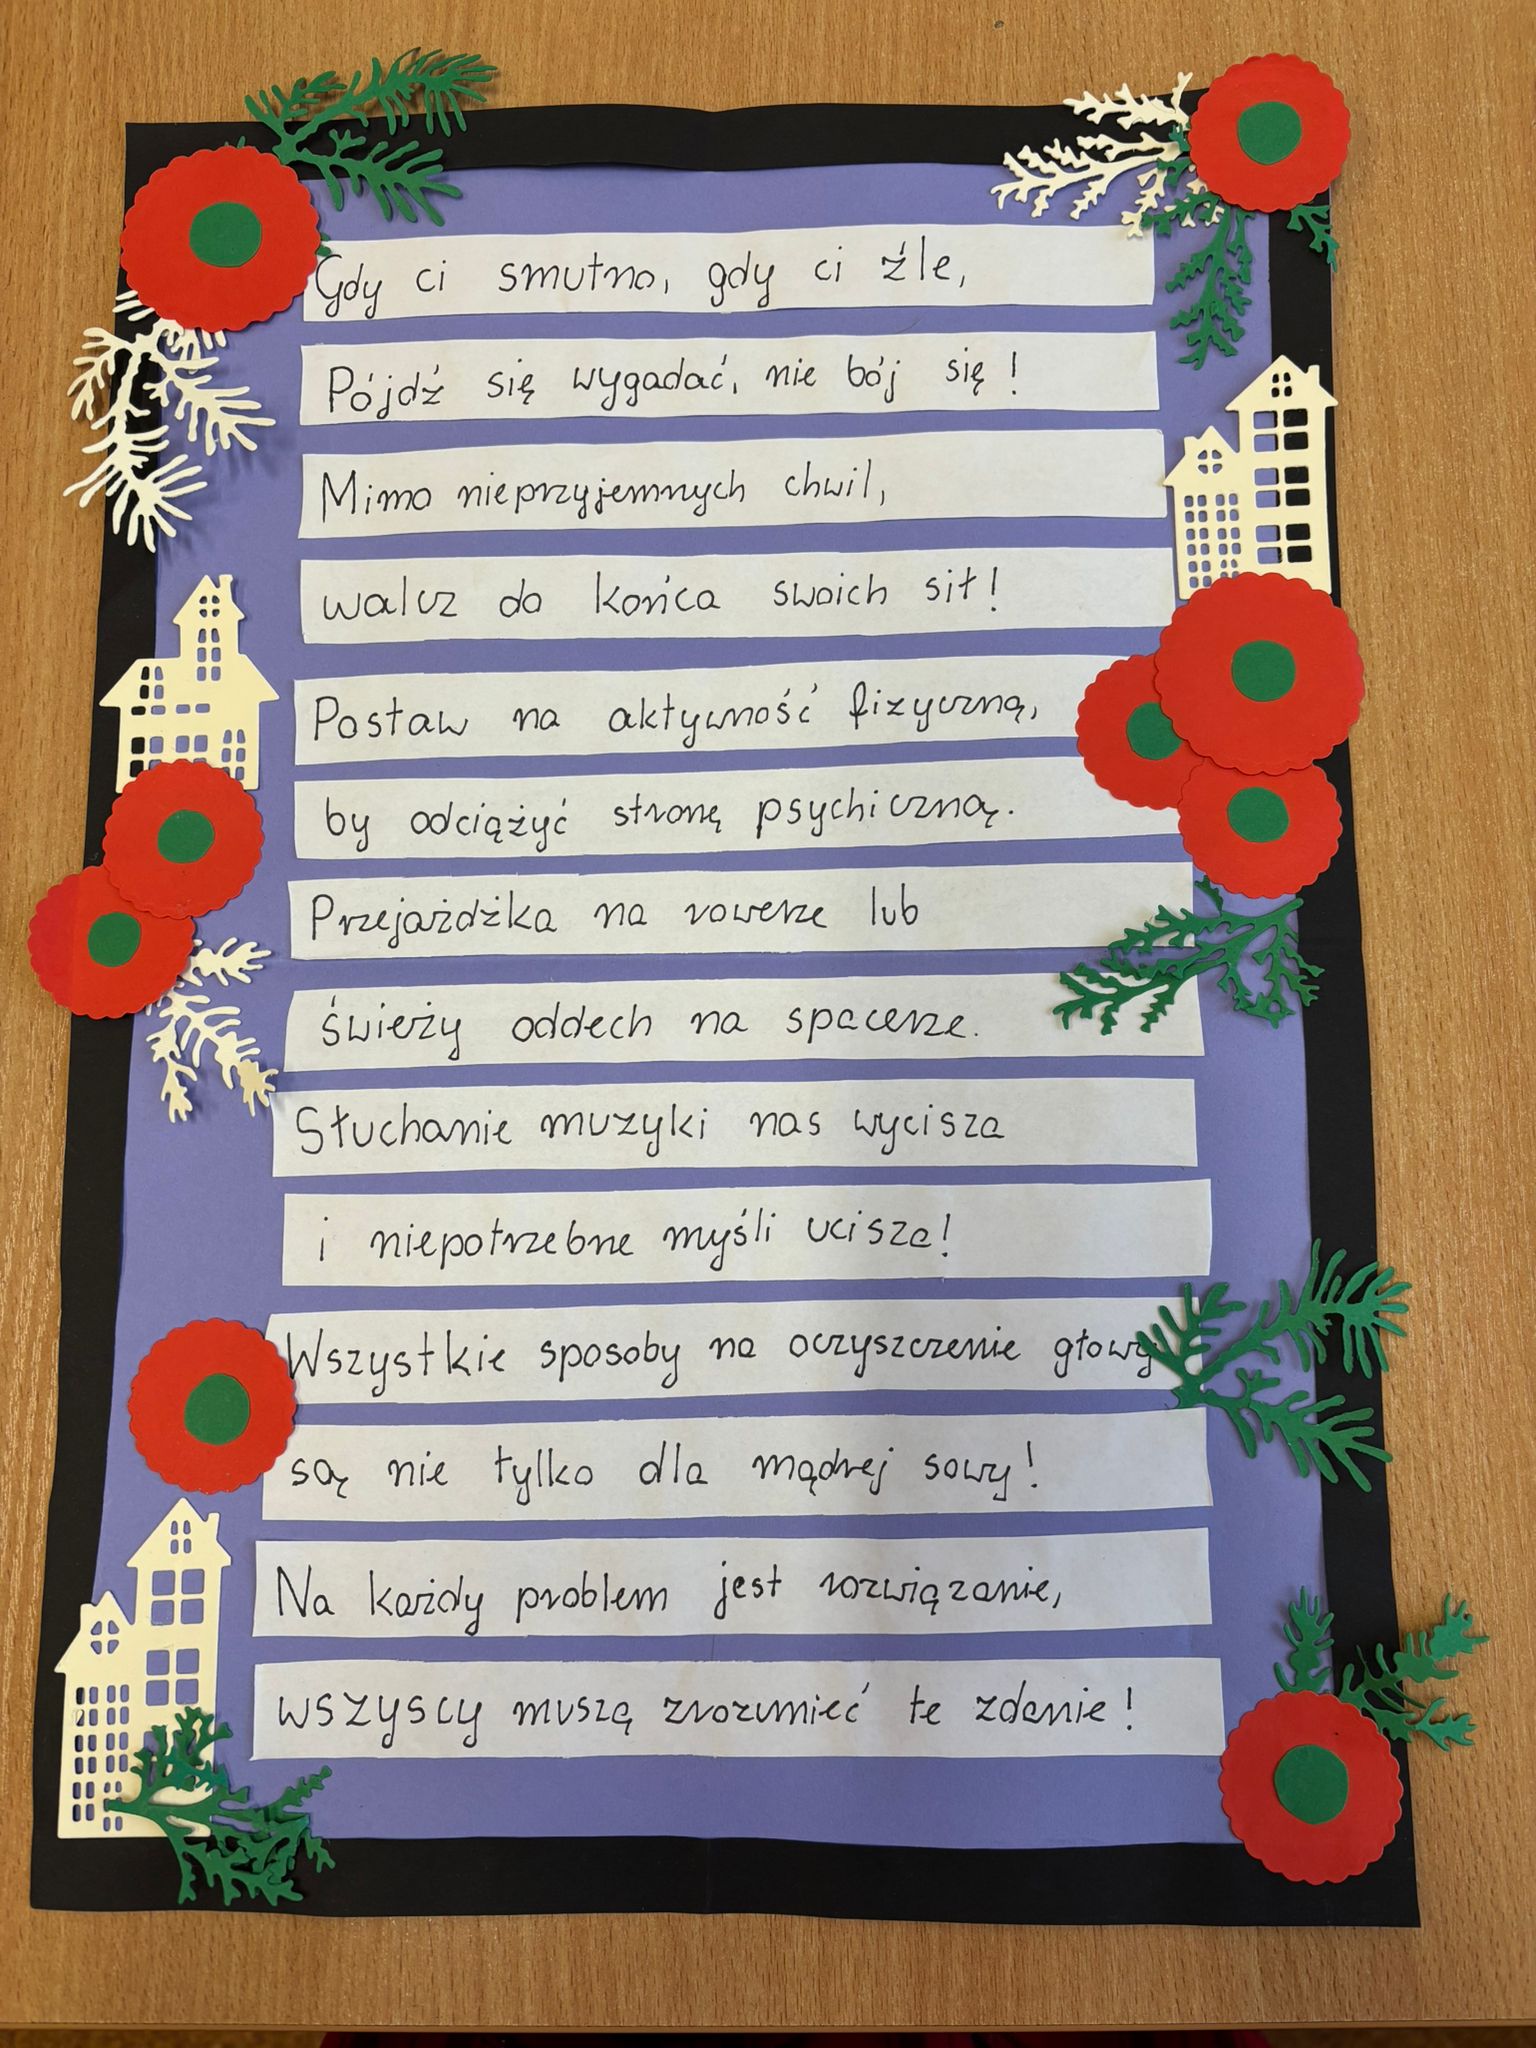 Gdy ci smutno, gdy ci źle,
Pójdź się wygadać, nie bój się!
Mimo nieprzyjemnych chwil,
walcz do końca swoich sił!
Postaw na aktywność fizyczną,
by odciążyć stronę psychiczną.
Przejażdżka na rowerze lub
świeży oddech na spacerze.
Słuchanie muzyki nas wycisza
i niepotrzebne myśli ucisza!
Wszystkie sposoby na oczyszczenie głowy
są nie tylko dla mądrej sowy!
Na każdy problem jest rozwiązanie,
wszyscy muszą zrozumieć te zdanie!